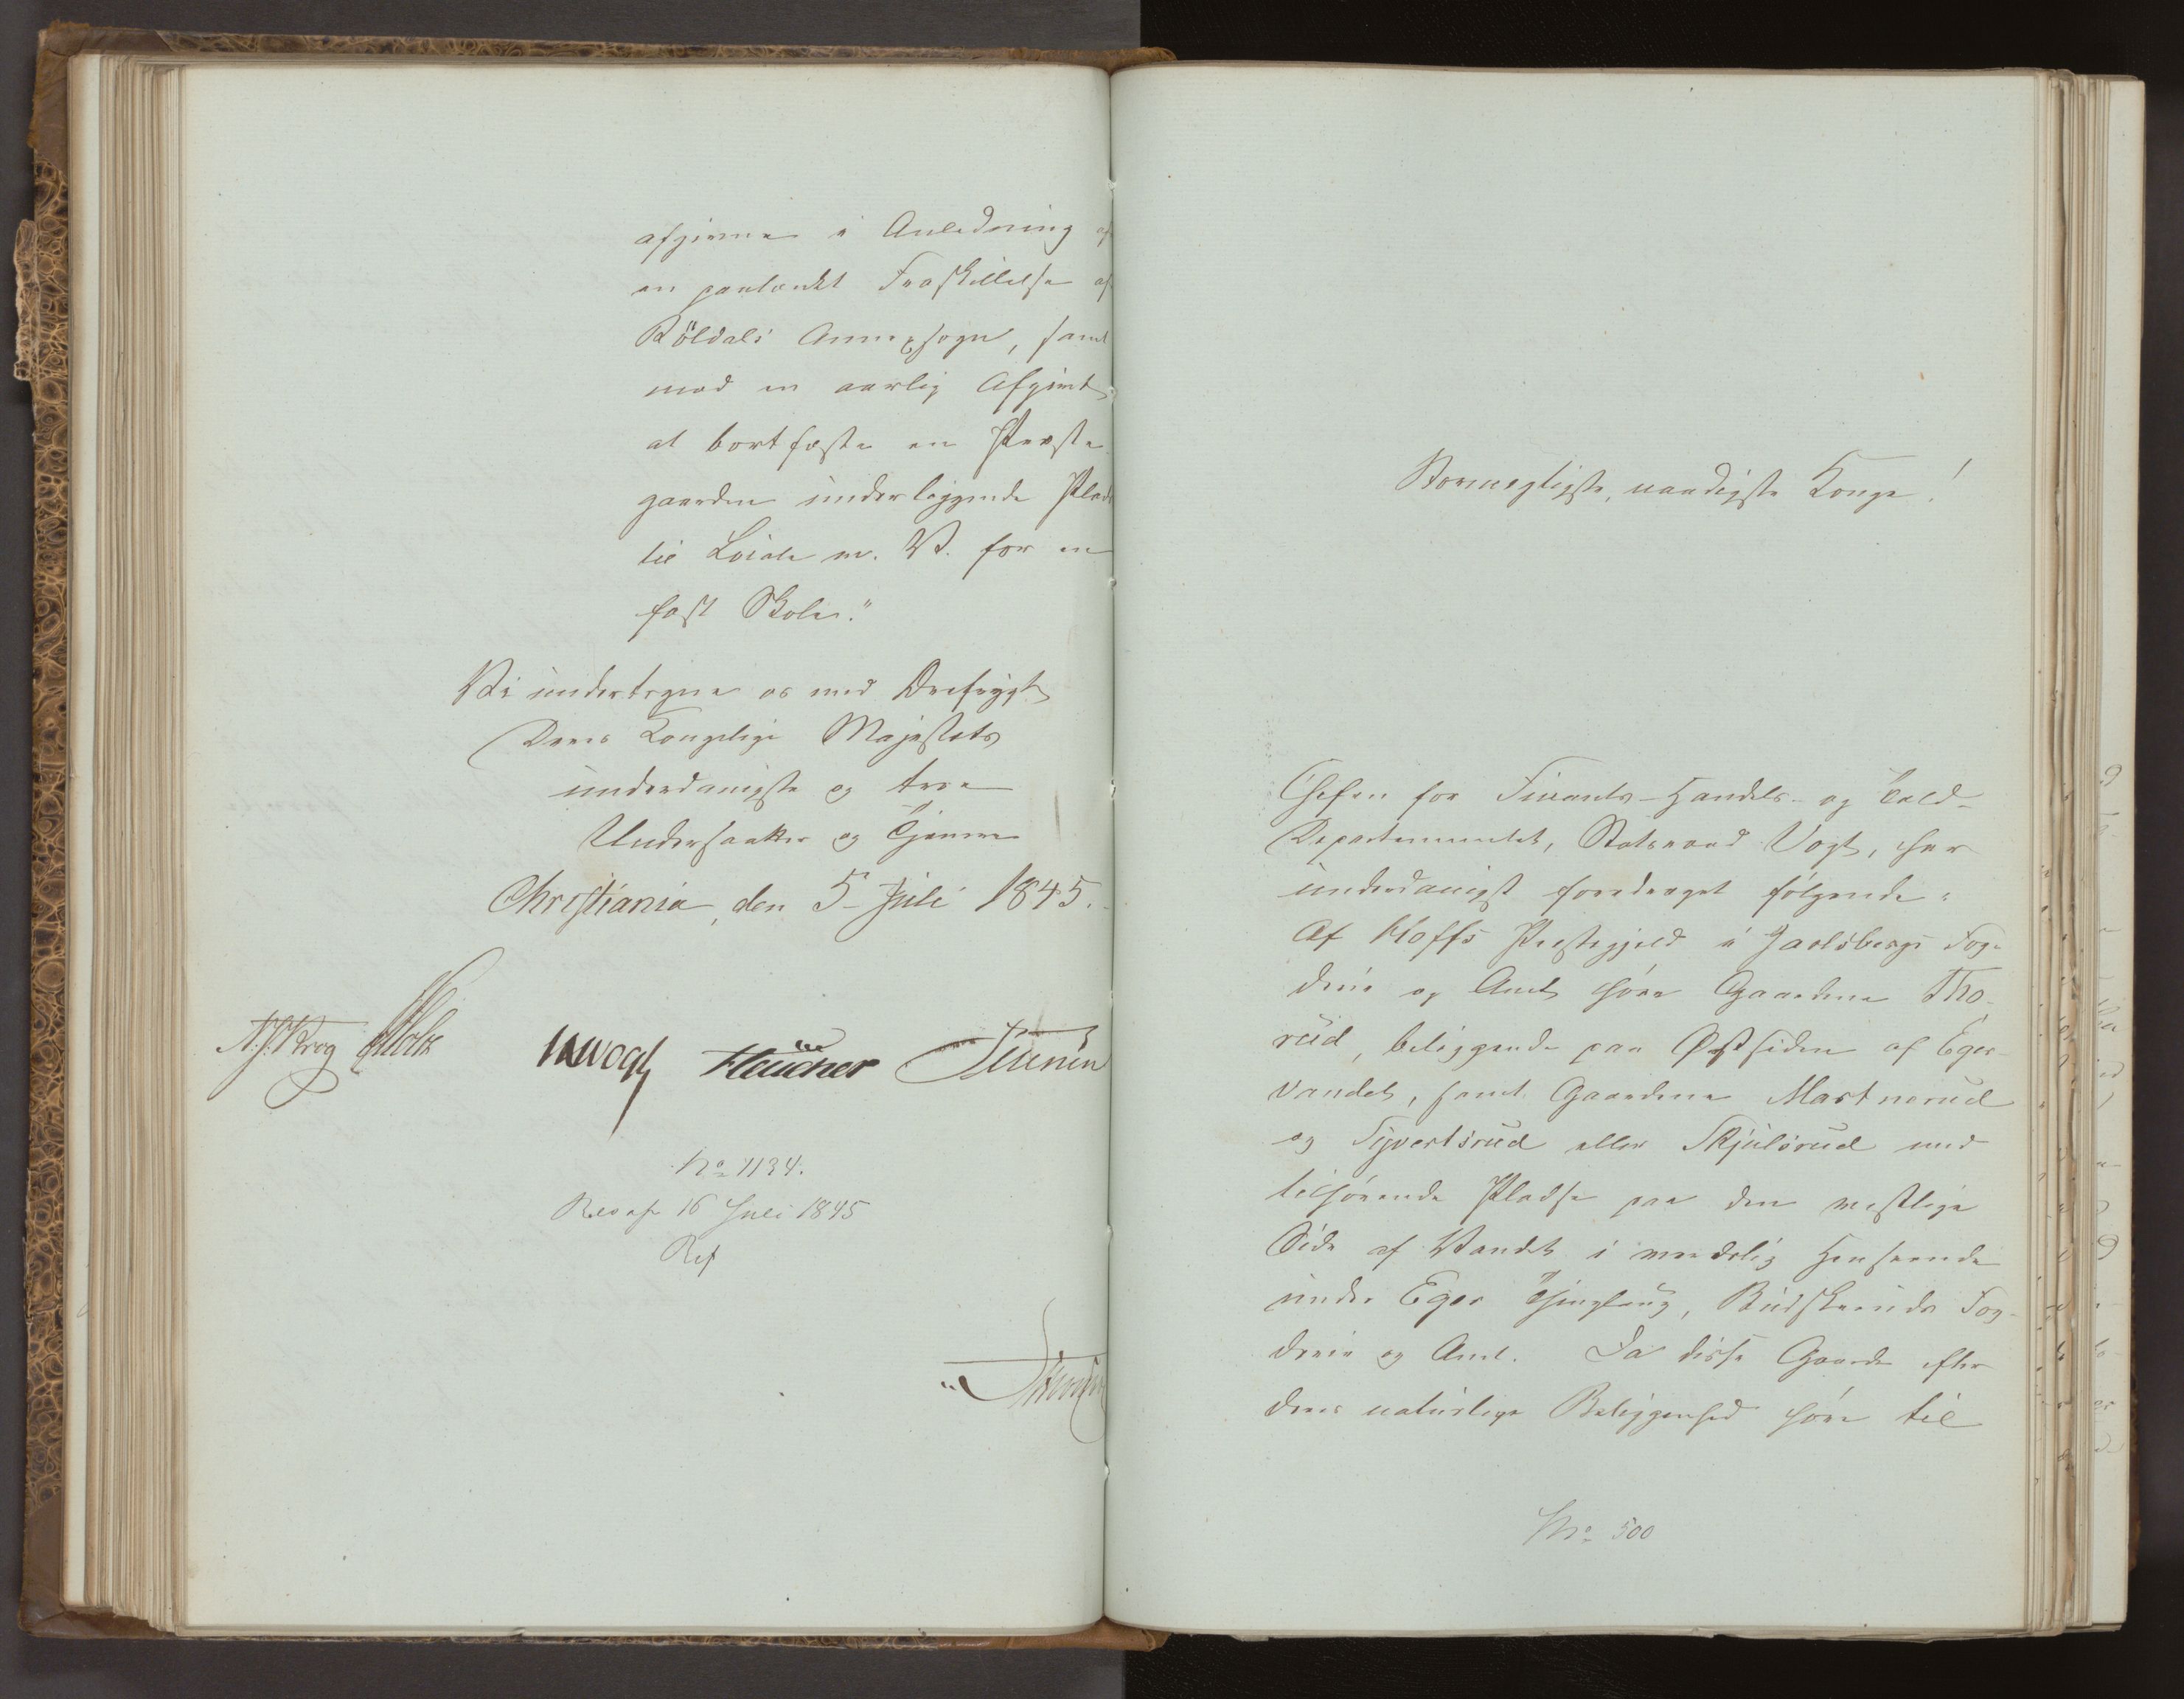 afgivne i Anledning af
en paatænkt Fraskillelse af
Röldals Annexsogn, samt
mod en aarlig Afgivt
at bortfæste en Præste-
gaarden underliggende Plads
til Locale m. V. for en
fast Skole."
Vi undertegne os med Ærefrygt
Deres Kongelige Majestæts
underdanigste og troe
Undersaatter og Tjenere
Christiania, den 5 Juli 1845.
N. J. Krog Holst Vogt Heidner Petersen
No 1134.
Res af 16 Juli 1845
Ref
Stormægtigste, naadigste Konge!
Chefen for Finants-Handels- og Told-
Departementet, Statsraad Vogt, har
underdanigst foredraget følgende:
Af Hoffs Præstegjeld i Jarlsbergs Fog-
derie og Amt høre Gaardene Tho-
rud, beliggende paa Østsiden af Eger-
vandet, samt Gaardene Mastnerud
og Syvertsrud eller Skjulsrud med
tilhørende Pladse paa den vestlige
Side af Vandet i verdslig Henseende
under Eger Thinglaug, Budskeruds Fog-
derie og Amt. Da disse Gaarde efter
deres naturlige Beliggenhed høre til
No 500